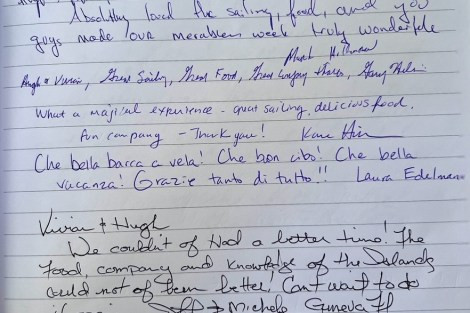 Absolutely loved the sailing, food, and you
guys made our week truly wonderful
Hugh & Vivian, Great Sailing, Great Food, Great
What a majical experience - great sailing, delicious food,
fun company - Thank you!
Che bella barca a vela! Che bon cibo! Che bella
vacanza! Grazie tanto di tutto!! Laura Edelmann
Vivian & Hugh
We couldn't of Had a better time! The
Food, company and Knowledge of the Islands
could not of been better! Can't wait to do
Jeff & Michele Geneva Fl